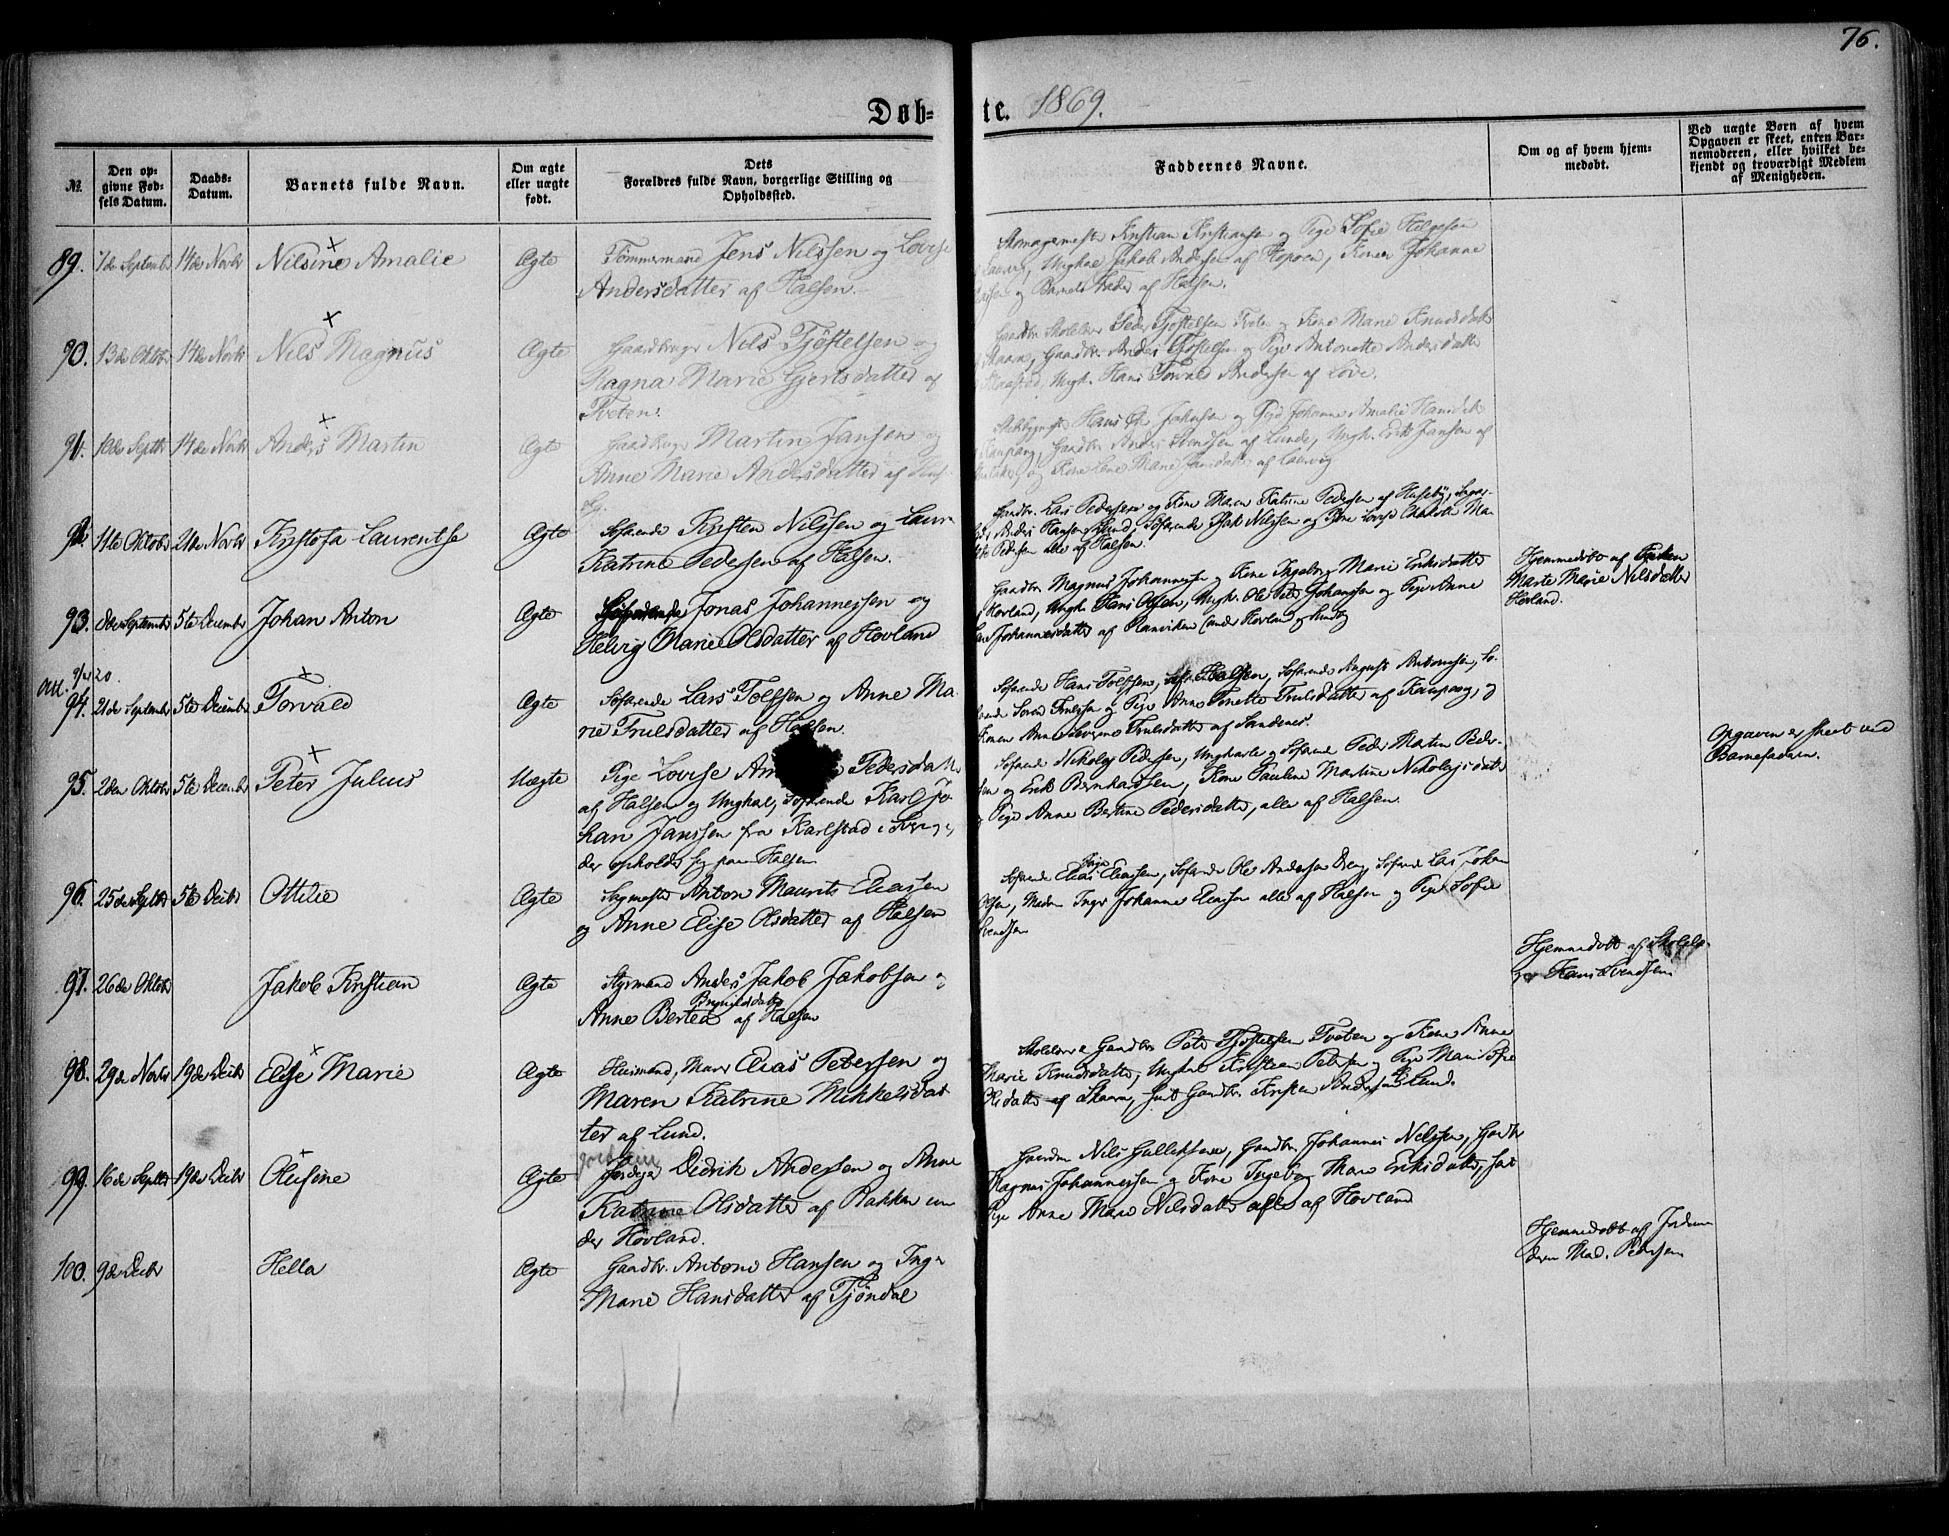 76.
Døb=te. 1869.
№
Den op-
givne Fød-
sels Datum.
Daabs-
Datum.
Barnets fulde Navn.
Om ægte
eller uægte
født.
Dets
Forældres fulde Navn, borgerlige Stilling og
Opholdssted.
Faddernes Navne.
Om og af hvem hjem-
medøbt.
Ved uægte Børn af hvem
Opgaven er skeet, enten Bar-
nemoderen, eller hvilket be-
kjendt og troværdigt Medlem
af Menigheden.
89. 7de Septembr 14de Novbr Nilsine Amalie Ægte Tømmermand Jens Nilssen og Lovise
Andersdatter af Halsen.
Kristian Kristiansen og Pige Sofie Helgesen
Ungkal Jakob Andersen af Konen Johanne
og Barnets Fader af Halsen.
90. 13de Oktobr 14de Novbr Nils Magnus Ægte Gaardbruger Nils Tjøstelsen og
Ragna Marie Gjertsdatter af
Tveten.
Gaardbr. Skolelærer Peder Tjøstelsen Tveten og Kone Marie Knudsdatter
Skaarn, Gaardbr. Anders Tjøstelsen og Pige Antonette Andersdatter
Ungk. Hans Torvald Andersen af Løve.
91. 14de Novbr Anders Martin Ægte Gaardbruger Martin Jansen og
Anne Marie Andersdatter af
Hans Chr. Jakobsen og Pige Johanne Amalie Hansdatter
Kaupang, Gaardbr. Anders Svendsen af Lunde, Ungk. Erik Jansen af
og Kone Lene Marie Jansdatter af Laurvig
92. 11te Oktobr 21de Novbr Kristofa Laurentse Ægte Søfarende Kristen Nilssen og Laura
Katrine Pedersen af Halsen.
Gaardbr. Lars Pedersen og Kone Maren Katrine Pedersen af Huseby,
Anders Hansen Lund, Søfarende Isak Nilssen og Pige Lovise Charlotte Ma-
Pedersen alle af Halsen.
93. 8de September 5te December Johan Anton Ægte Jonas Johannessen og
Helvig Marie Olsdatter af Hovland
Gaardbr. Magnus Johannessen og Kone Ingeborg Marie Eriksdatter
Hovland, Ungk. Hans Olsen, Ungk. Ole Peter Johansen og Pige Anne
Johannesdatter af Ranviken under Hovland
Hjemmedøbt af Pigen
Marte Marie Nilsdatter
Hovland.
Att. 9/4 20.
94. 21de September 5te December Torvald Ægte Søfarende Lars Tolfsen og Anne Ma-
rie Trulsdatter af Halsen.
Søfarende Hans Tolfsen, Halsen, Søfarende August Antonisen, Sø-
farende Søren Trulssen og Pige Anne Tonette Trulsdatter af Kaupang, og
Konen Anne Severine Trulsdatter af Sandenes.
95. 2den Oktobr 5te December Peter Julius Uægte Pige Lovise Pedersdatter
af Halsen og Ungkal, Søfarende Karl Jo-
han Janssen fra Karlstad i Sverige,
der opholder sig paa Halsen
Søfarende Nikolay Pedersen, Ungkarle Søfarende Peder Martin Peder-
sen og Erik Bernhardsen, Kone Pauline Martine Nikolajsdatter
og Pige Anne Bertine Pedersdatter, alle af Halsen.
Opgaven er skeet ved
Barnefaderen.
96. 25de Septbr 5te Decbr Ottilie Ægte Sagmester Anton Mauritz Eliassen
og Anne Elise Olsdatter af Halsen
Søfarende Elias Eliassen, Søfarende Ole Andersen Berg, Søfarende Lars Johan
Olsen, Madm Inger Johanne Eliassen alle af Halsen og Pige Sofie
Svendsen
97. 26de Oktobr Jakob Kristian Ægte Styrmand Anders Jakob Jakobsen og
Anne Bertea Brynildsdatter af Halsen
Hjemmedøbt af Skolelæ-
rer Hans Svendsen
98. 29de Novbr 19de Decbr Elise Marie Ægte Husmand, Murer Elias Petersen og
Maren Katrine Mikkelsdat-
ter af Lund.
Skolelærer & Gaardbr. Peder Tjøstelsen Tveten og Kone Anne
Marie Knudsdatter, Ungkal Kristian Petersen og Pige Marie Sofie
Olsdatter af Skaarn, samt Gaardbr. Kristen Andersen Lund.
99. 16de Septbr 19de Decbr Olefine Ægte Fordeyer Didrik Andersen og Anne
Katrine Olsdatter af Bakken un-
der Hovland.
Gaardmand Nils Gulliksen, Gaardbr. Johannes Nelssen, Gaardbr
Magnus Johannessen og Kone Ingeborg Marie Eriksdatter, samt
Pige Anne Marie Nilsdatter alle af Hovland
100. 9de Decbr Hella Ægte Gaardbr. Anton Hansen og Inger
Marie Hansdatter af Tjøndal
Hjemmedøbt af Jordemo-
deren Mad. Petersen